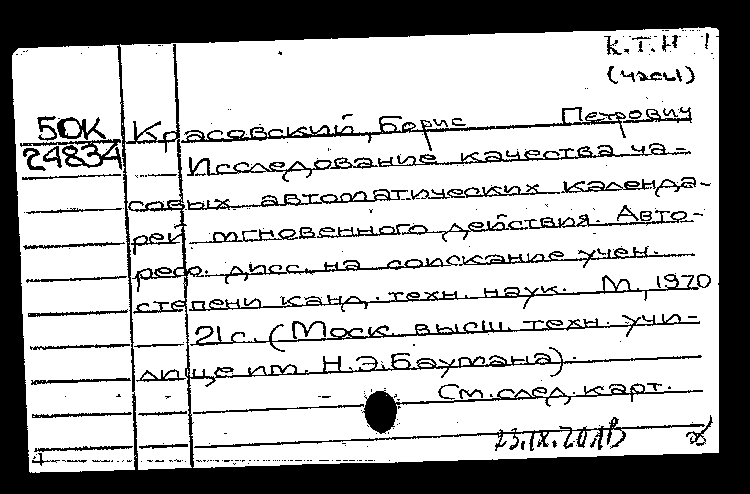 К.Т.Н
(часы)
50К Красовский, Борис Петрович
24834 Исследование качества ча-
совых автоматических календа-
рей мгновенного действия. Авто-
реф. дисс. на соискание учен.
степени канд. техн. наук. М., 1970
21 с. (Моск. высш. техн. учи-
лище им. Н.Э.Баумана).
См. след. карт.